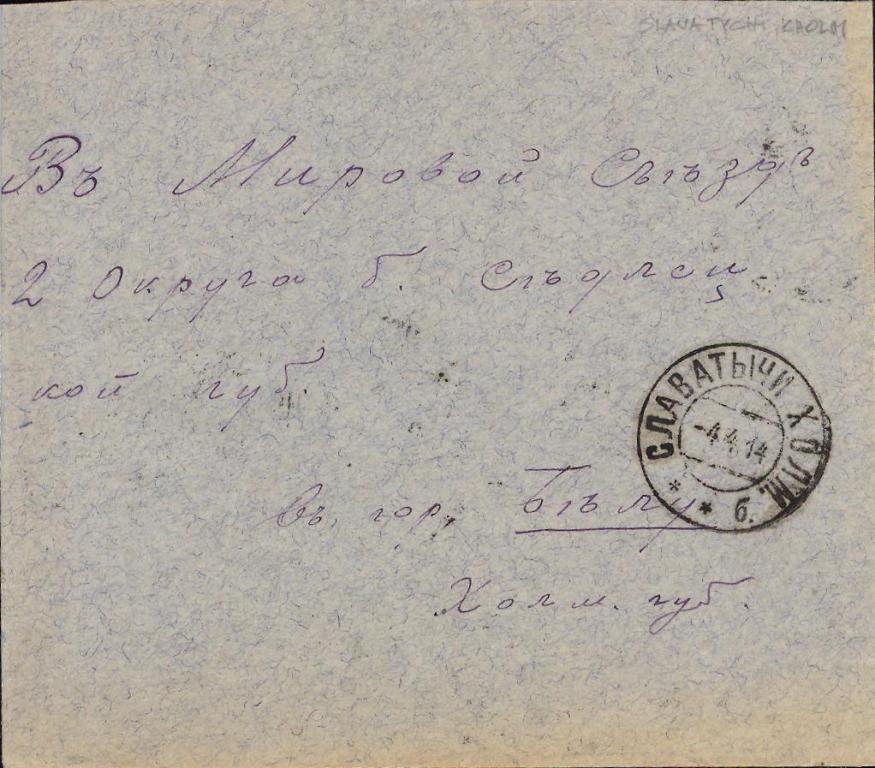 SLAVATYCHI, KHOLM
Въ Мировой Съѣздъ
2 Округа б. Сѣдлец
кой губ.
СЛАВАТЫЧИ ХОЛМ.
-4.4.14
* * б.
въ гор. Бѣлу
Холм. губ.